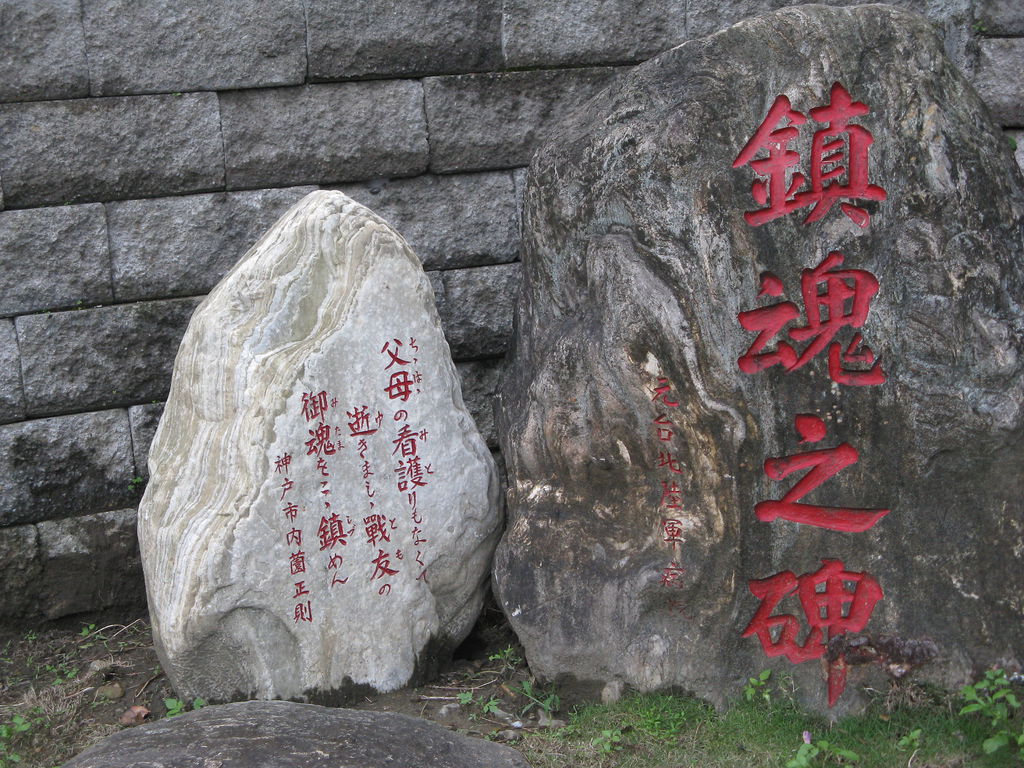 鎮魂之碑
元台北陸軍病院
父母の看護りもなくて
逝きましゝ戰友の
御魂をこゝ鎮めん
神戸市内薗正則